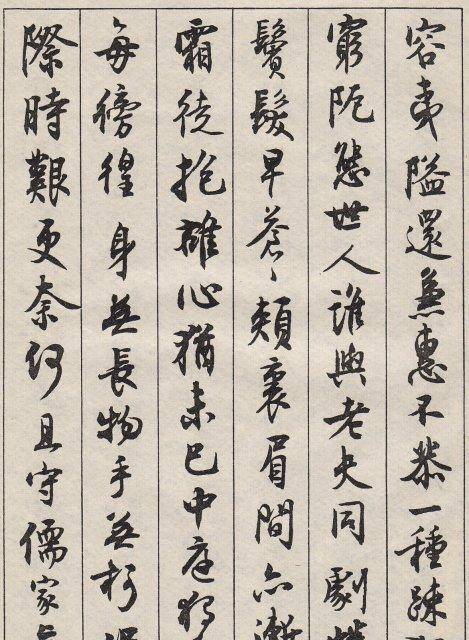 容夷隘還兼惠不恭一種疎
窮阨態世人誰與老夫同劇
鬢髮早蒼〻頰裏眉間亦漸
霜徒抱雄心猶未已中庭獨
每徬徨身無長物手無柯
際時艱更奈何且守儒家